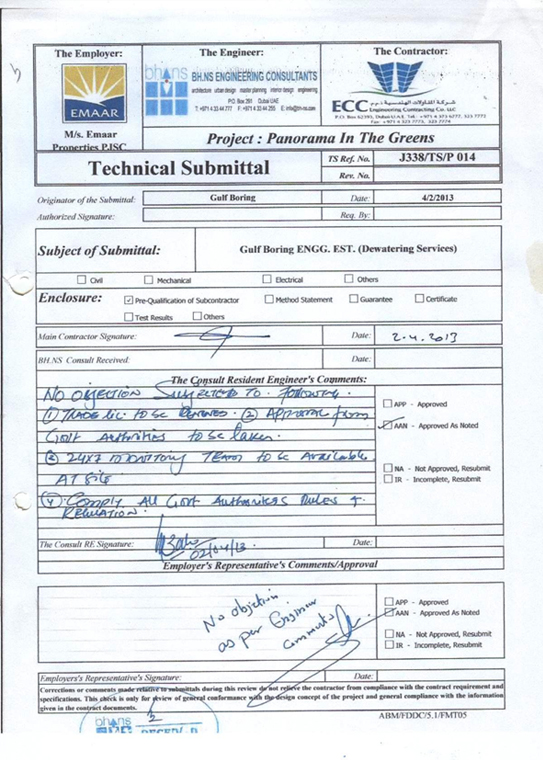 The Employer:
The Engineer:
The Contractor:
EMAAR
M/s. Emaar
Properties PJSC
bhans
BH.NS ENGINEERING CONSULTANTS
architecture urban design master planning interior design engineering
P.O. Box 291 Dubai UAE
T: +971 4 33 44 777 F: +971 4 33 44 255 E: info@bh-ns.com
ECC
Engineering Contracting Co. LLC
P.O. Box 62393, Dubai U.A.E.
Project : Panorama In The Greens
Technical Submittal
TS Ref. No. J338/TS/P 014
Rev. No.
Originator of the Submittal: Gulf Boring Date: 4/2/2013
Authorized Signature: Req. By:
Subject of Submittal: Gulf Boring ENGG. EST. (Dewatering Services)
Civil Mechanical Electrical Others
Enclosure: Pre-Qualification of Subcontractor Method Statement Guarantee Certificate
Test Results Others
Main Contractor Signature: Date: 2-4.2013
BH.NS Consult Received: Date:
The Consult Resident Engineer's Comments:
NO OBJECTION SUBJECTED TO. FOLLOWING.
(1) TRADE lic. TO BE RENEWED. (2) APPROVAL from
Govt AUTHORITIES TO BE taken.
(3) 24X7 MONITORING TEAM TO BE AVAILABLE
AT SITE
(4) COMPLY ALL Govt Authorities RULES +
REGULATION.
APP - Approved
AAN - Approved As Noted
NA - Not Approved, Resubmit
IR - Incomplete, Resubmit
The Consult RE Signature: 02/04/13. Date:
Employer's Representative's Comments/Approval
No objection
as per Engineer
comments
APP - Approved
AAN - Approved As Noted
NA - Not Approved, Resubmit
IR - Incomplete, Resubmit
Employers's Representative's Signature: Date:
Corrections or comments made relative to submittals during this review do not relieve the contractor from compliance with the contract requirement and
specifications. This check is only for review of general conformance with the design concept of the project and general compliance with the information
given in the contract documents.
ABM/FDDC/5.1/FMT05
bhans